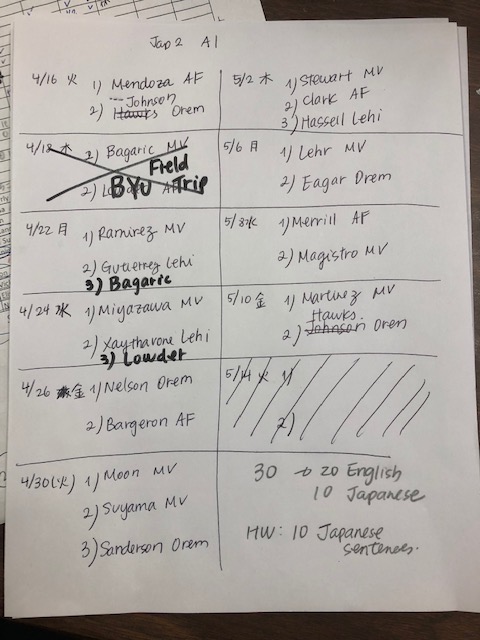 Jap 2 A1
4/16 火 1) Mendoza AF
Johnson
2) Hawks Orem
4/18 木 1) Bagaric MV
Field
2) AF
BYU Trip
4/22 月 1) Ramirez MV
2) Gutierrez Lehi
3) Bagaric
4/24 水 1) Miyazawa MV
2) Xaythavone Lehi
3) Lowder
4/26 金 1) Nelson Orem
2) Bargeron AF
4/30 (火) 1) Moon MV
2) Suyama MV
3) Sanderson Orem
5/2 木 1) Stewart MV
2) Clark AF
3) Hassell Lehi
5/6 月 1) Lehr MV
2) Eagar Orem
5/8 水 1) Merrill AF
2) Magistro MV
5/10 金 1) Martinez MV
Hawks
2) Johnson Orem
5/14 火 1)
2)
30 → 20 English
10 Japanese
HW: 10 Japanese
sentences.